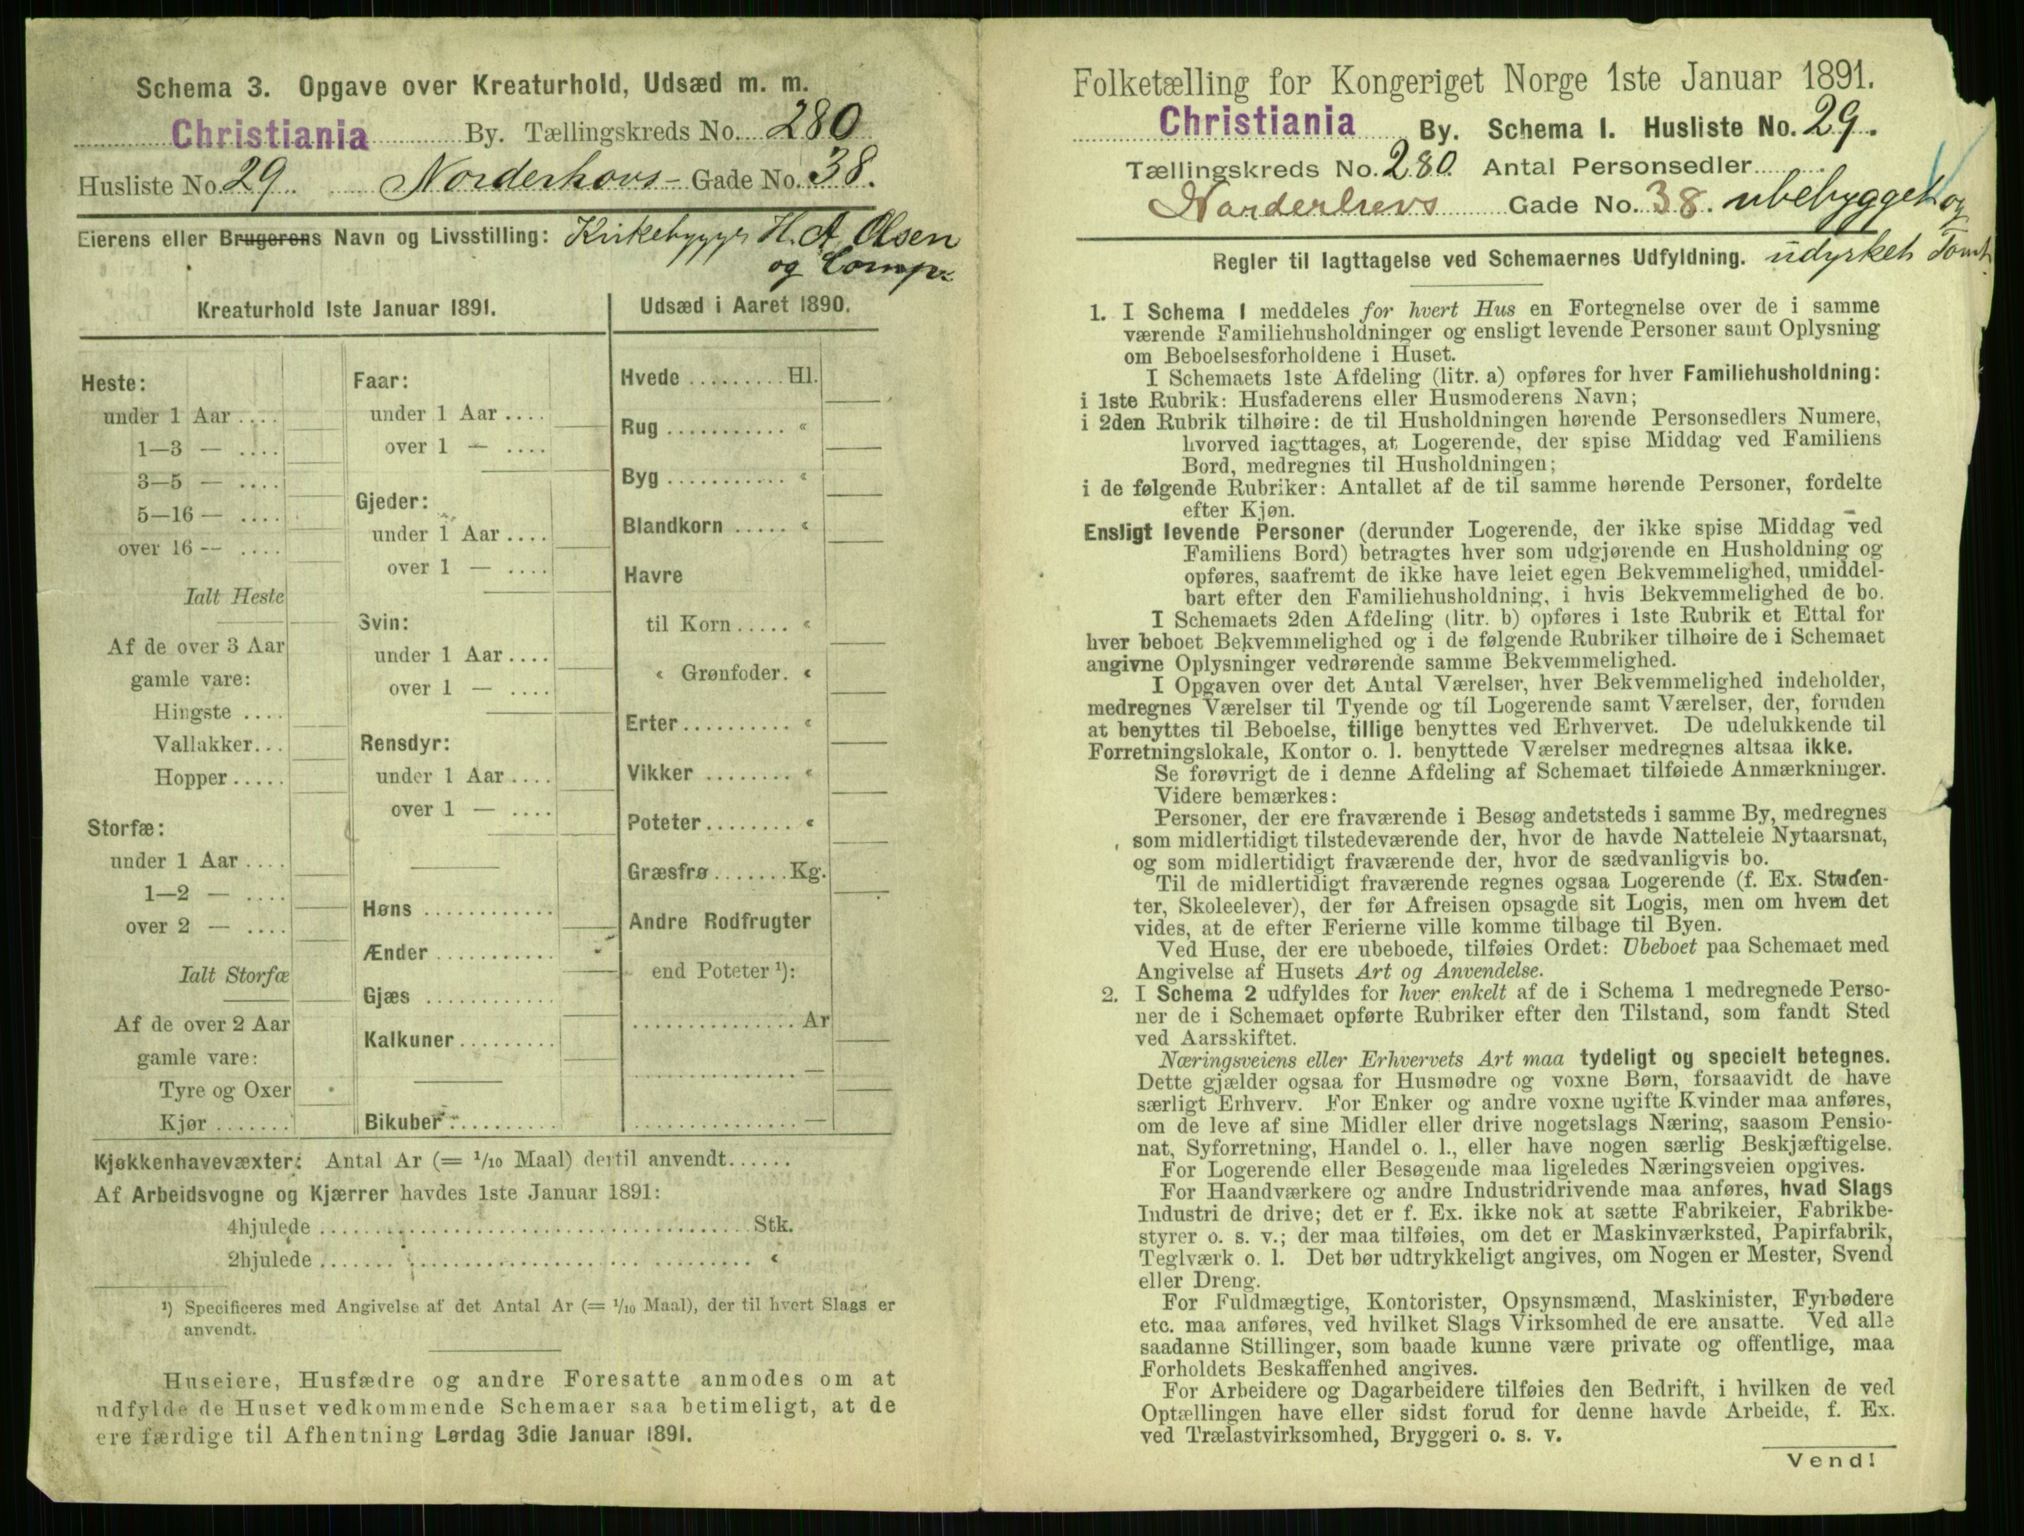 Schema 3. Opgave over Kreaturhold, Udsæd m. m.
Christiania By. Tællingskreds No. 280
Husliste No. 29. Norderhovs- Gade No. 38.
Eierens eller Brugerens Navn og Livsstilling: Kirkebygger H. A. Olsen
og Comp.
Kreaturhold 1ste Januar 1891.
Heste:
under 1 Aar ....
1—3 — ....
3—5 — ....
5—16 — ....
over 16 — ....
Ialt Heste
Af de over 3 Aar
gamle vare:
Hingste ....
Vallakker...
Hopper .....
Storfæ:
under 1 Aar ....
1—2 — ....
over 2 — ....
Ialt Storfæ
Af de over 2 Aar
gamle vare:
Tyre og Oxer
Kjør .......
Faar:
under 1 Aar ....
over 1 — ....
Gjeder:
under 1 Aar ....
over 1 — ....
Svin:
under 1 Aar ....
over 1 — ....
Rensdyr:
under 1 Aar ....
over 1 — ....
Høns ............
Ænder ...........
Gjæs ............
Kalkuner.........
Bikuber..........
Udsæd i Aaret 1890.
Hvede ......... Hl.
Rug ........... «
Byg ........... «
Blandkorn ..... «
Havre
til Korn ..... «
« Grønfoder. «
Erter.......... «
Vikker ........ «
Poteter........ «
Græsfrø....... Kg.
Andre Rodfrugter
end Poteter ¹):
............... Ar
............... —
............... —
Kjøkkenhavevæxter: Antal Ar (= 1/10 Maal) dertil anvendt......
Af Arbeidsvogne og Kjærrer havdes 1ste Januar 1891:
4hjulede ........................................ Stk.
2hjulede ........................................ «
¹) Specificeres med Angivelse af det Antal Ar (= 1/10 Maal), der til hvert Slags er
anvendt.
Huseiere, Husfædre og andre Foresatte anmodes om at
udfylde de Huset vedkommende Schemaer saa betimeligt, at de
ere færdige til Afhentning Lørdag 3die Januar 1891.
Folketælling for Kongeriget Norge 1ste Januar 1891.
Christiania By. Schema 1. Husliste No. 29.
Tællingskreds No. 280. Antal Personsedler........
Norderhovs Gade No. 38. ubebygget og
udyrket Tomt
Regler til Iagttagelse ved Schemaernes Udfyldning.
1. I Schema 1 meddeles for hvert Hus en Fortegnelse over de i samme
værende Familiehusholdninger og ensligt levende Personer samt Oplysning
om Beboelsesforholdene i Huset.
I Schemaets 1ste Afdeling (litr. a) opføres for hver Familiehusholdning:
i 1ste Rubrik: Husfaderens eller Husmoderens Navn;
i 2den Rubrik tilhøire: de til Husholdningen hørende Personsedlers Numere,
hvorved iagttages, at Logerende, der spise Middag ved Familiens
Bord, medregnes til Husholdningen;
i de følgende Rubriker: Antallet af de til samme hørende Personer, fordelte
efter Kjøn.
Ensligt levende Personer (derunder Logerende, der ikke spise Middag ved
Familiens Bord) betragtes hver som udgjørende en Husholdning og
opføres, saafremt de ikke have leiet egen Bekvemmelighed, umiddel-
bart efter den Familiehusholdning, i hvis Bekvemmelighed de bo.
I Schemaets 2den Afdeling (litr. b) opføres i 1ste Rubrik et Ettal for
hver beboet Bekvemmelighed og i de følgende Rubriker tilhøire de i Schemaet
angivne Oplysninger vedrørende samme Bekvemmelighed.
I Opgaven over det Antal Værelser, hver Bekvemmelighed indeholder,
medregnes Værelser til Tyende og til Logerende samt Værelser, der, foruden
at benyttes til Beboelse, tillige benyttes ved Erhvervet. De udelukkende til
Forretningslokale, Kontor o. l. benyttede Værelser medregnes altsaa ikke.
Se forøvrigt de i denne Afdeling af Schemaet tilføiede Anmærkninger.
Videre bemærkes:
Personer, der ere fraværende i Besøg andetsteds i samme By, medregnes
som midlertidigt tilstedeværende der, hvor de havde Natteleie Nytaarsnat,
og som midlertidigt fraværende der, hvor de sædvanligvis bo.
Til de midlertidigt fraværende regnes ogsaa Logerende (f. Ex. Studen-
ter, Skoleelever), der før Afreisen opsagde sit Logis, men om hvem det
vides, at de efter Ferierne ville komme tilbage til Byen.
Ved Huse, der ere ubeboede, tilføies Ordet: Ubeboet paa Schemaet med
Angivelse af Husets Art og Anvendelse.
2. I Schema 2 udfyldes for hver enkelt af de i Schema 1 medregnede Perso-
ner de i Schemaet opførte Rubriker efter den Tilstand, som fandt Sted
ved Aarsskiftet.
Næringsveiens eller Erhvervets Art maa tydeligt og specielt betegnes.
Dette gjælder ogsaa for Husmødre og voxne Børn, forsaavidt de have
særligt Erhverv. For Enker og andre voxne ugifte Kvinder maa anføres,
om de leve af sine Midler eller drive nogetslags Næring, saasom Pensio-
nat, Syforretning, Handel o. l., eller have nogen særlig Beskjæftigelse.
For Logerende eller Besøgende maa ligeledes Næringsveien opgives.
For Haandværkere og andre Industridrivende maa anføres, hvad Slags
Industri de drive; det er f. Ex. ikke nok at sætte Fabrikeier, Fabrikbe-
styrer o. s. v.; der maa tilføies, om det er Maskinværksted, Papirfabrik,
Teglværk o. l. Det bør udtrykkeligt angives, om Nogen er Mester, Svend
eller Dreng.
For Fuldmægtige, Kontorister, Opsynsmænd, Maskinister, Fyrbødere
etc. maa anføres, ved hvilket Slags Virksomhed de ere ansatte. Ved alle
saadanne Stillinger, som baade kunne være private og offentlige, maa
Forholdets Beskaffenhed angives.
For Arbeidere og Dagarbeidere tilføies den Bedrift, i hvilken de ved
Optællingen have eller sidst forud for denne havde Arbeide, f. Ex.
ved Trælastvirksomhed, Bryggeri o. s. v.
Vend!